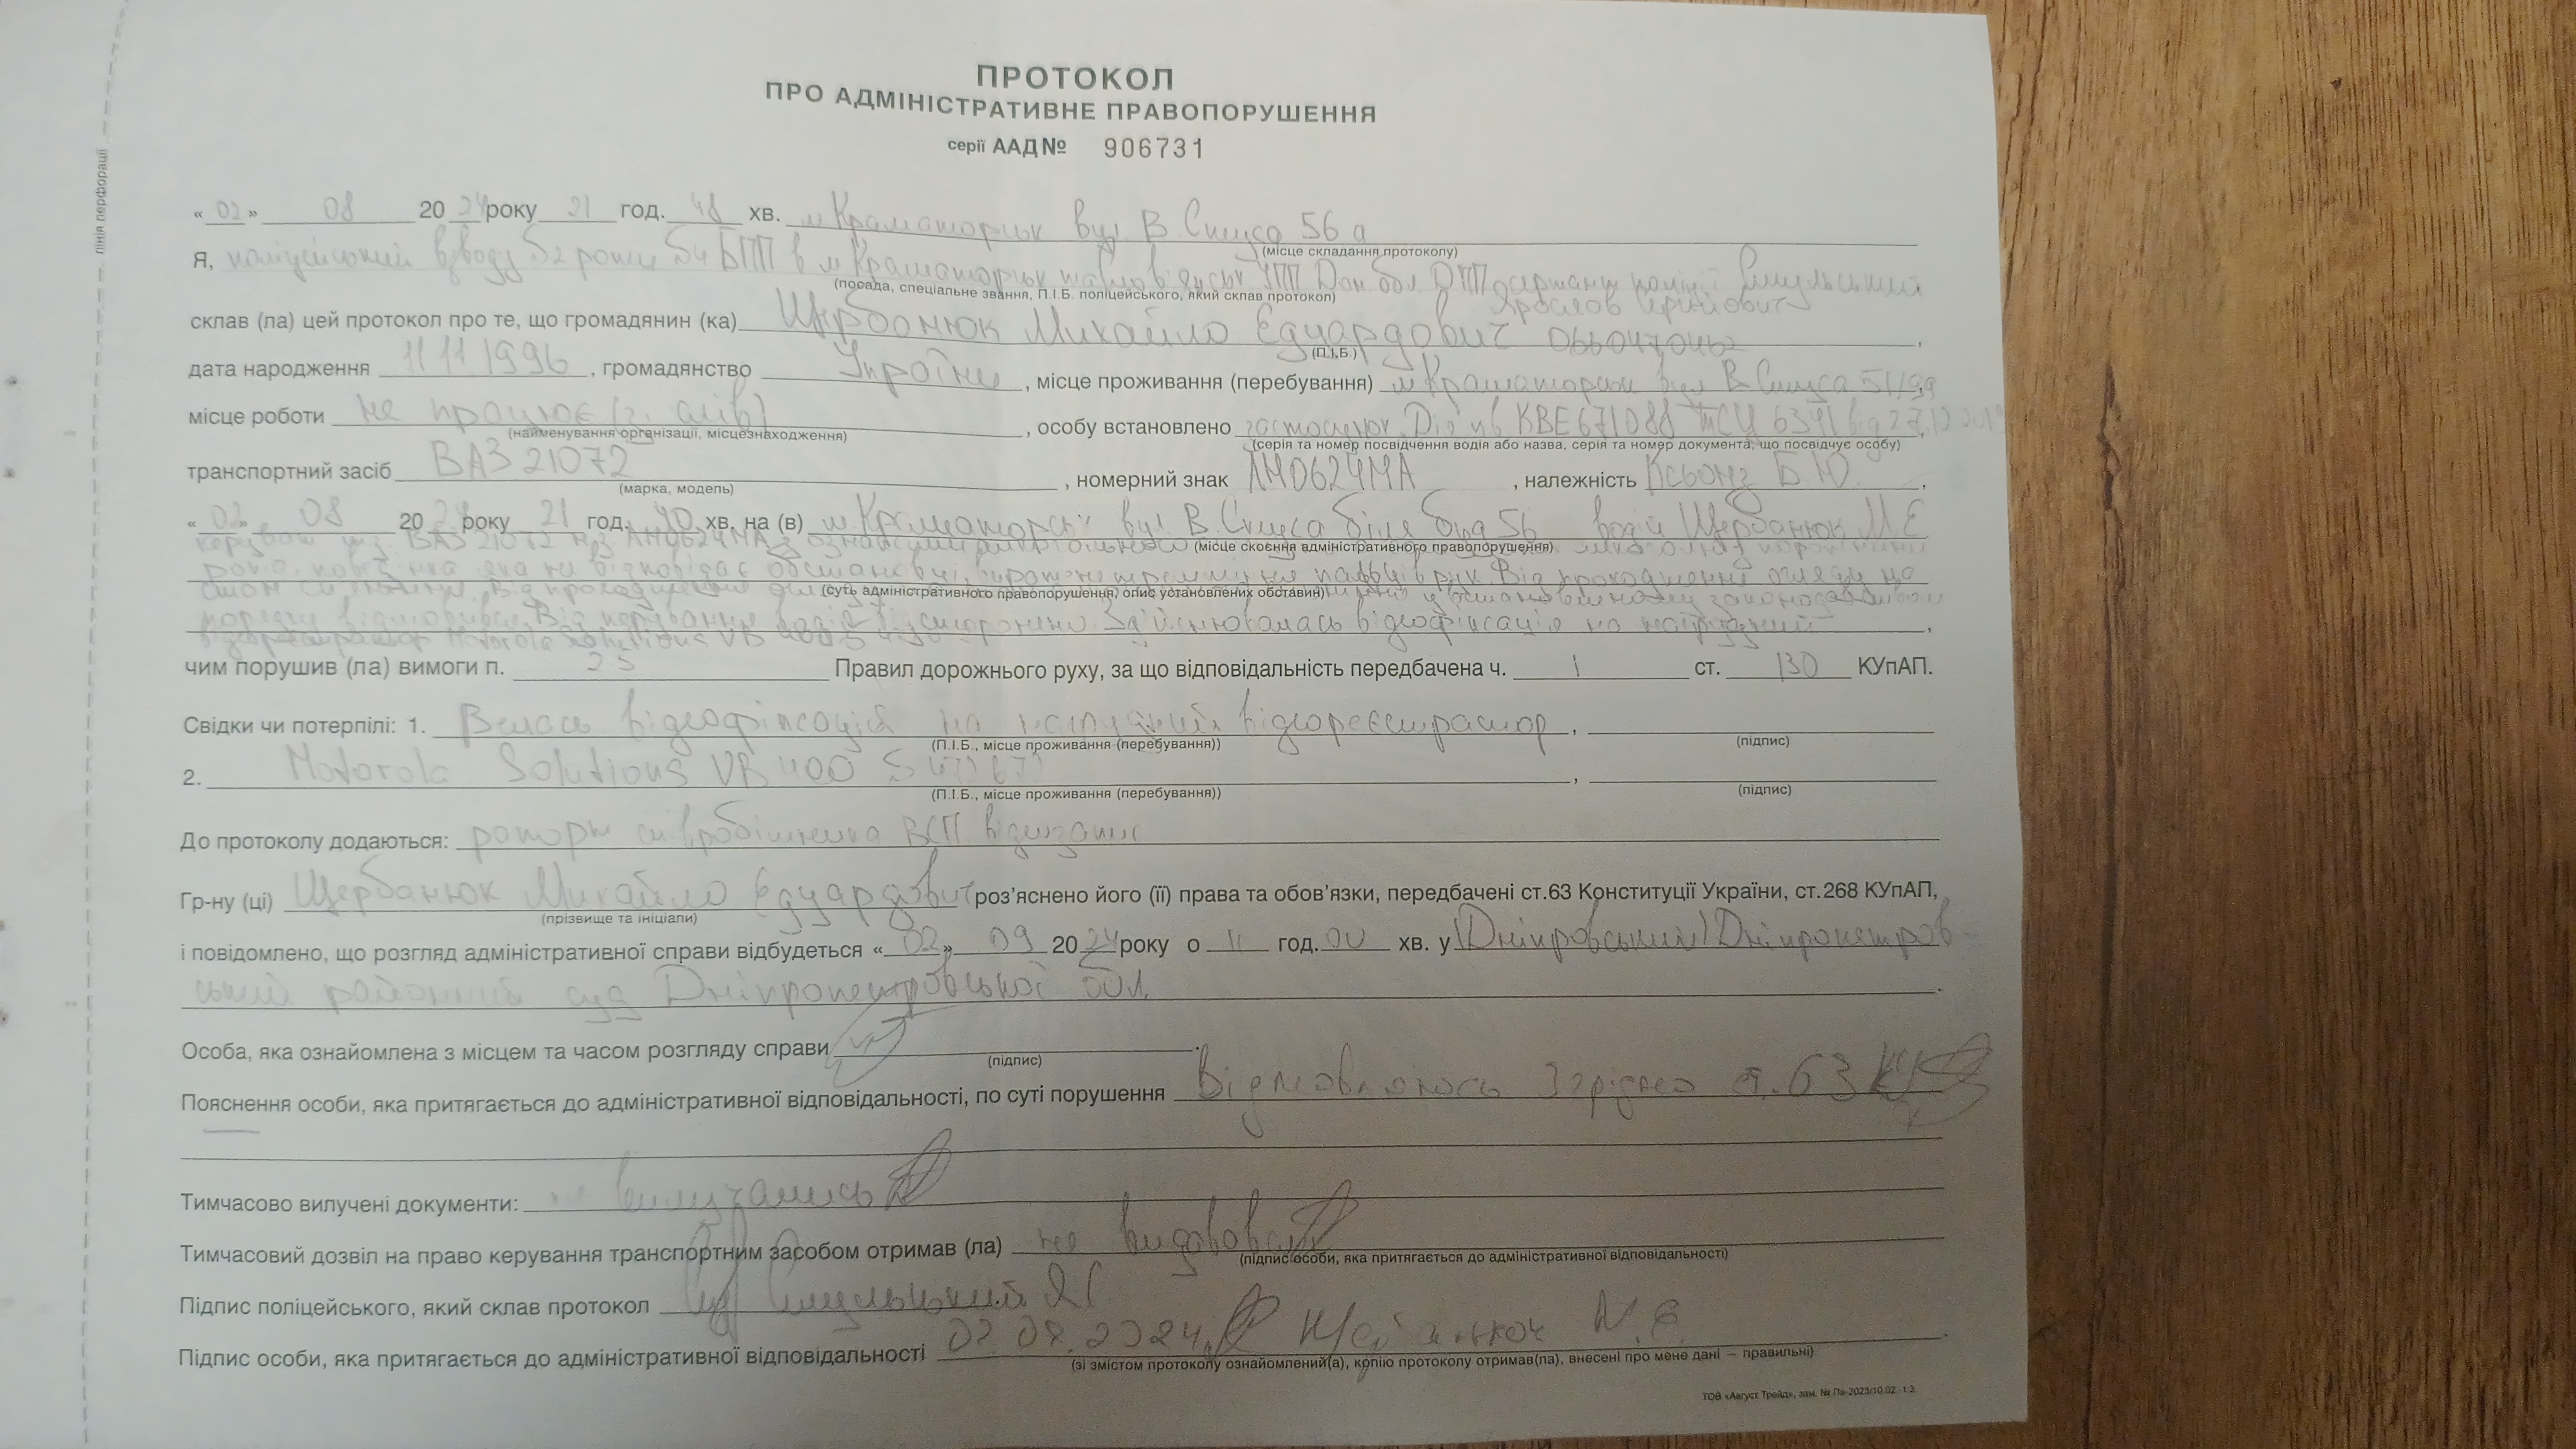 ПРОТОКОЛ
ПРО АДМІНІСТРАТИВНЕ ПРАВОПОРУШЕННЯ
серії ААД № 906731
лінія перфорації
« 02 » 08 20 24 року 21 год. 48 хв. м Краматорськ вул В. Стуса 56 а
(місце складання протоколу)
Я, поліцейський взводу роти БПП в м Краматорськ УПП Дон обл ДПП сержант поліції
(посада, спеціальне звання, П.І.Б. поліцейського, який склав протокол) Ярослав
склав (ла) цей протокол про те, що громадянин (ка) Щербанюк Михайло Едуардович
(П.І.Б.)
дата народження 11 11 1996 , громадянство України , місце проживання (перебування) м Краматорськ вул В. Стуса 51/99
місце роботи не працює (зі слів) , особу встановлено застосунок Дія КВЕ671088 ТСЦ 6341 від
(найменування організації, місцезнаходження) (серія та номер посвідчення водія або назва, серія та номер документа, що посвідчує особу)
транспортний засіб ВАЗ 21072 , номерний знак АМ0624МА , належність Б.Ю.
(марка, модель)
« 02 » 08 20 24 року 21 год. 40 хв. на (в) м. Краматорськ вул В. Стуса біля буд 56 водій Щербанюк М Е
керував т.з. ВАЗ 21072 нз АМ0624МА з ознаками
(місце скоєння адміністративного правопорушення)
рота, поведінка яка не відповідає обстановці, тремтіння пальців рук. Від проходження огляду на
стан сп'яніння Від проходження у встановленому законодавством
(суть адміністративного правопорушення, опис установлених обставин)
порядку відмовився. Від керування водій усторонено. Здійснювалась відеофіксація на нагрудний
відеореєстратор Motorola Solutions VB 400
чим порушив (ла) вимоги п. 2.5 Правил дорожнього руху, за що відповідальність передбачена ч. 1 ст. 130 КУпАП.
Свідки чи потерпілі: 1. Велась відеофіксація на нагрудний відеореєстратор ,
(П.І.Б., місце проживання (перебування)) (підпис)
2. Motorola Solutions VB 400 ,
(П.І.Б., місце проживання (перебування)) (підпис)
До протоколу додаються: рапорт співробітника ВСП відеозапис
Гр-ну (ці) Щербанюк Михайло Едуардович роз'яснено його (її) права та обов'язки, передбачені ст.63 Конституції України, ст.268 КУпАП,
(прізвище та ініціали)
і повідомлено, що розгляд адміністративної справи відбудеться « 02 » 09 20 24 року о 11 год. 00 хв. у Дніпровський Дніпропетров-
ський районний суд Дніпропетровської обл.
Особа, яка ознайомлена з місцем та часом розгляду справи .
(підпис)
Пояснення особи, яка притягається до адміністративної відповідальності, по суті порушення Відмовляюсь Згрідно ст. 63 КУ
Тимчасово вилучені документи: не вилучались
Тимчасовий дозвіл на право керування транспортним засобом отримав (ла) не видавався
(підпис особи, яка притягається до адміністративної відповідальності)
Підпис поліцейського, який склав протокол
Підпис особи, яка притягається до адміністративної відповідальності 02.08.2024 М.Е.
(зі змістом протоколу ознайомлений(а), копію протоколу отримав(ла), внесені про мене дані – правильні)
ТОВ «Август Трейд», зам. № Па-2023/10.02.-1.3.